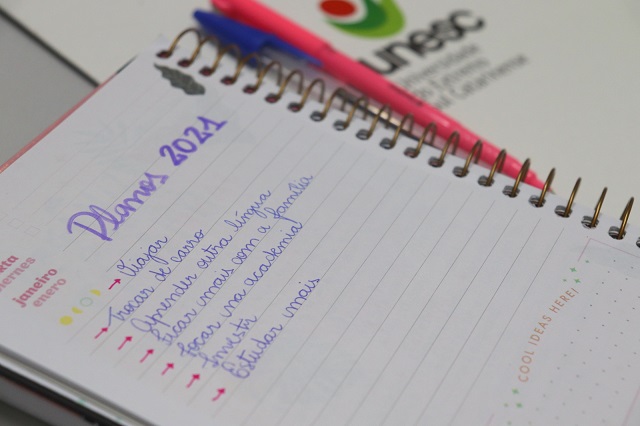 unesc
Planos 2021
Viajar
Trocar de carro
Aprender outra língua
Ficar mais com a família
Focar na academia
Investir
Estudar mais
janeiro
enero
COOL IDEAS HERE!